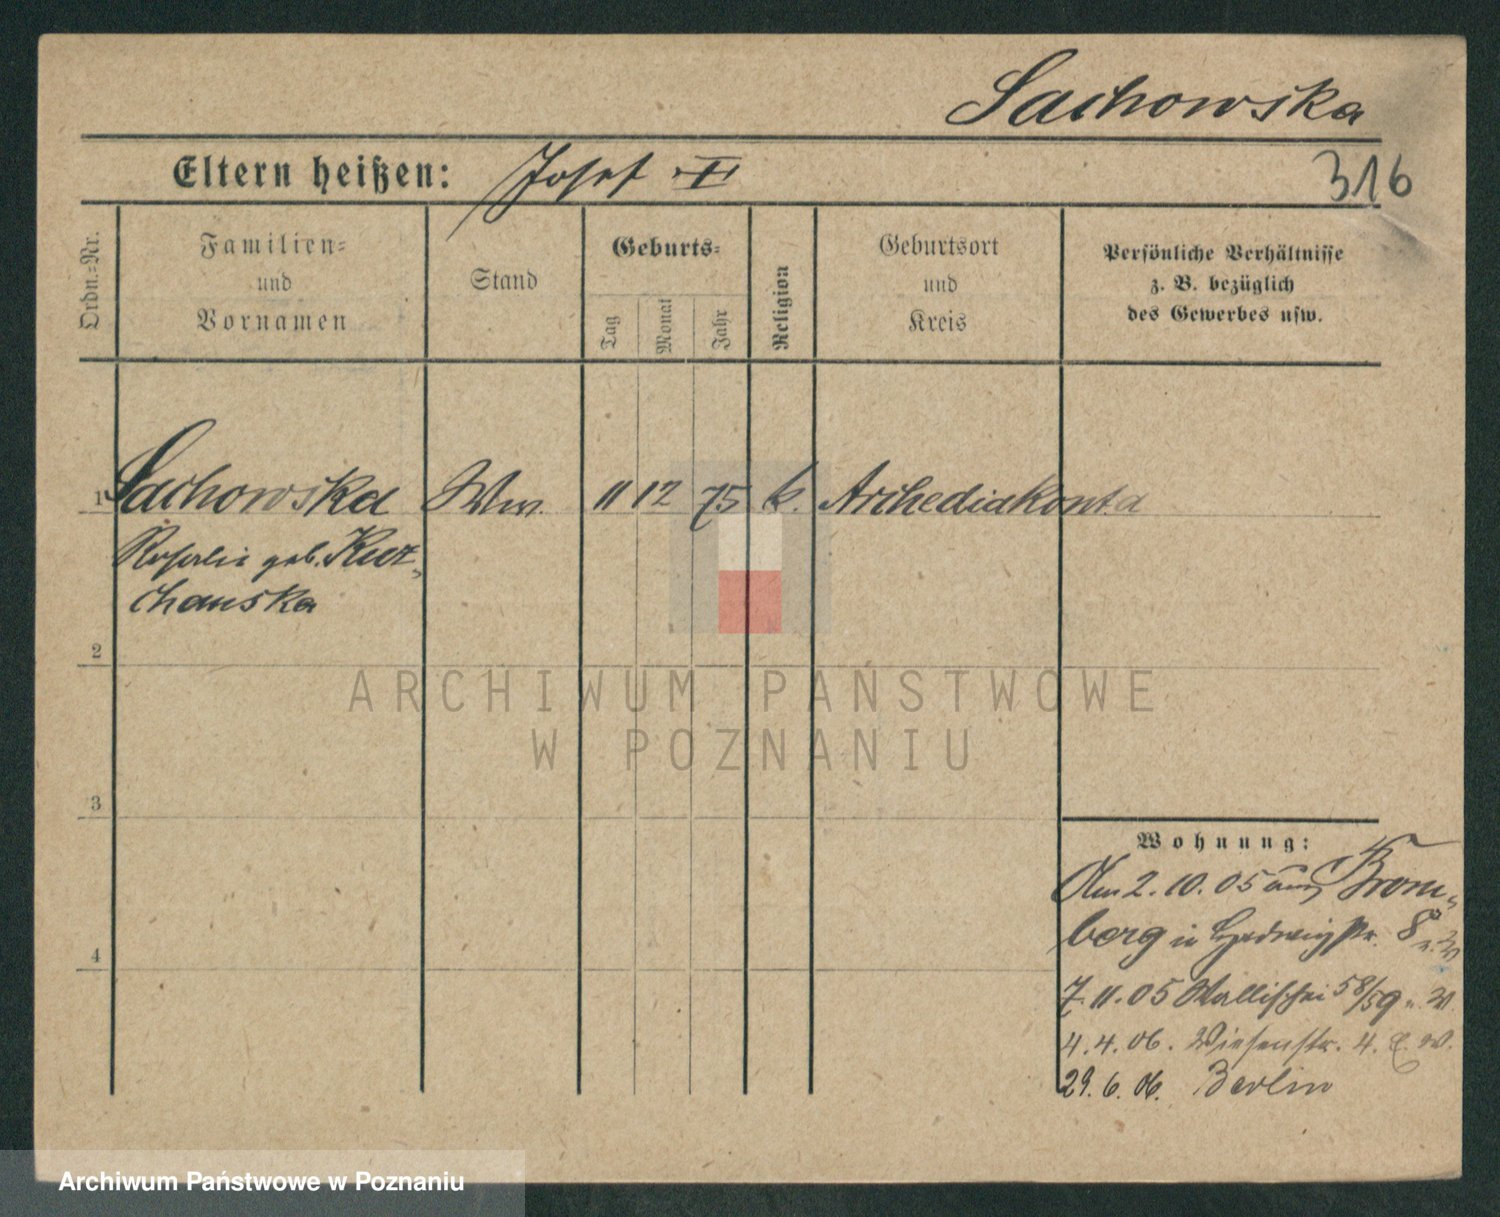 Sachowska
Eltern heißen: Josef †
316
Ordn.=Nr.
Familien=
und
Vornamen
Stand
Geburts=
Tag
Monat
Jahr
Religion
Geburtsort
und
Kreis
Persönliche Verhältnisse
z. B. bezüglich
des Gewerbes usw.
1 Sachowska Ww. 11 12 75 k. Archediakonta
Rosalie geb.
chanska
2
ARCHIWUM PAŃSTWOWE
W POZNANIU
3
Wohnung:
Am 2. 10. 05 aus Brom-
berg in Hedwigstr. 8
7. 11. 05 Wallischei 58/59
4. 4. 06. Wiesenstr. 4.
29. 6. 06. Berlin
4
Archiwum Państwowe w Poznaniu